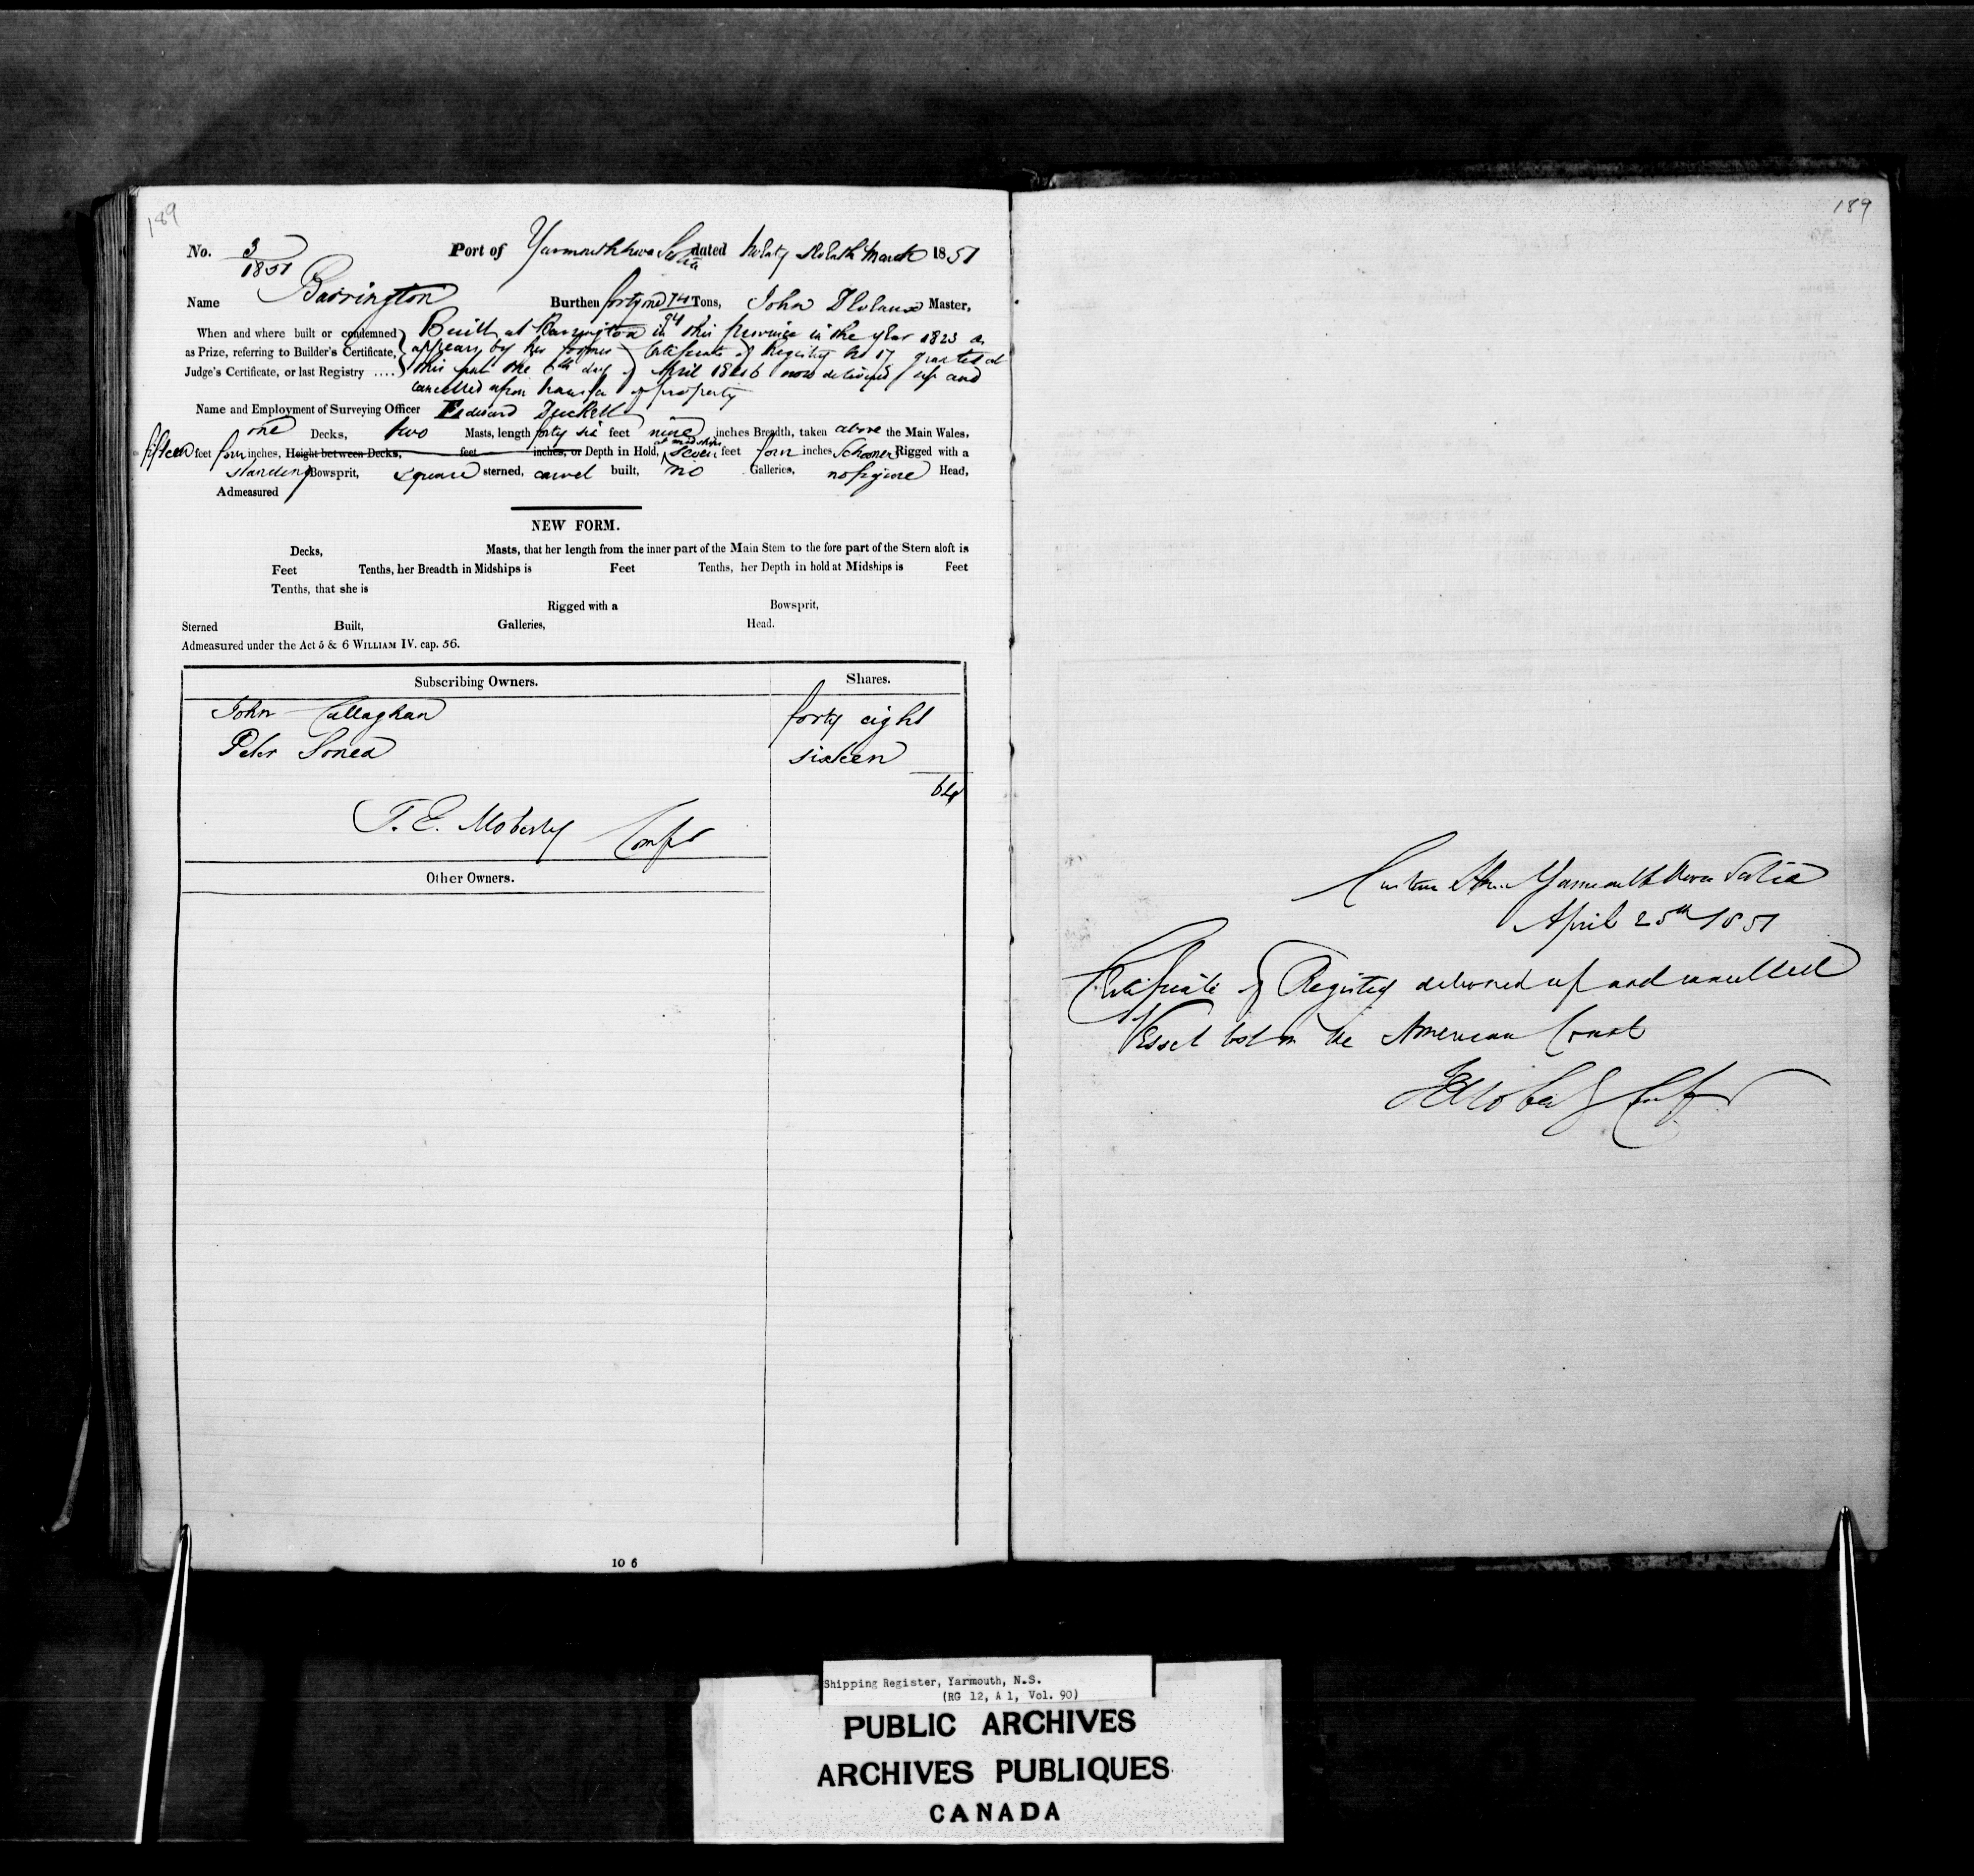 189
No. 3/1851 Port of Yarmouth Nova Scotia dated March 1851
Name Barrington Burthen forty one 74/94 Tons, John Master,
When and where built or condemned } Built at Barrington in this Province in the year 1823 as
as Prize, referring to Builder's Certificate, } appears by her former Certificate of Registry No 17 granted at
Judge's Certificate, or last Registry .... } this port the 6th day of April 1846 now delivered up and
cancelled upon transfer of property
Name and Employment of Surveying Officer Edward Duckett
one Decks, two Masts, length forty six feet nine inches Breadth, taken above the Main Wales,
fifteen feet four inches, Height between Decks, feet inches, or Depth in Hold, at midships seven feet four inches Schooner Rigged with a
standing Bowsprit, square sterned, carvel built, no Galleries, no figure Head,
Admeasured
NEW FORM.
Decks, Masts, that her length from the inner part of the Main Stem to the fore part of the Stern aloft is
Feet Tenths, her Breadth in Midships is Feet Tenths, her Depth in hold at Midships is Feet
Tenths, that she is
Rigged with a Bowsprit,
Sterned Built, Galleries, Head.
Admeasured under the Act 5 & 6 WILLIAM IV. cap. 56.
Subscribing Owners. Shares.
John Callaghan forty eight
Peter sixteen
64
T. E. Moberly Compr
Other Owners.
10 6
189
Custom House Yarmouth Nova Scotia
April 25th 1851
Certificate of Registry delivered up and cancelled
Vessel lost on the American Coast
T E Moberly Compr
Shipping Register, Yarmouth, N.S.
(RG 12, A 1, Vol. 90)
PUBLIC ARCHIVES
ARCHIVES PUBLIQUES
CANADA